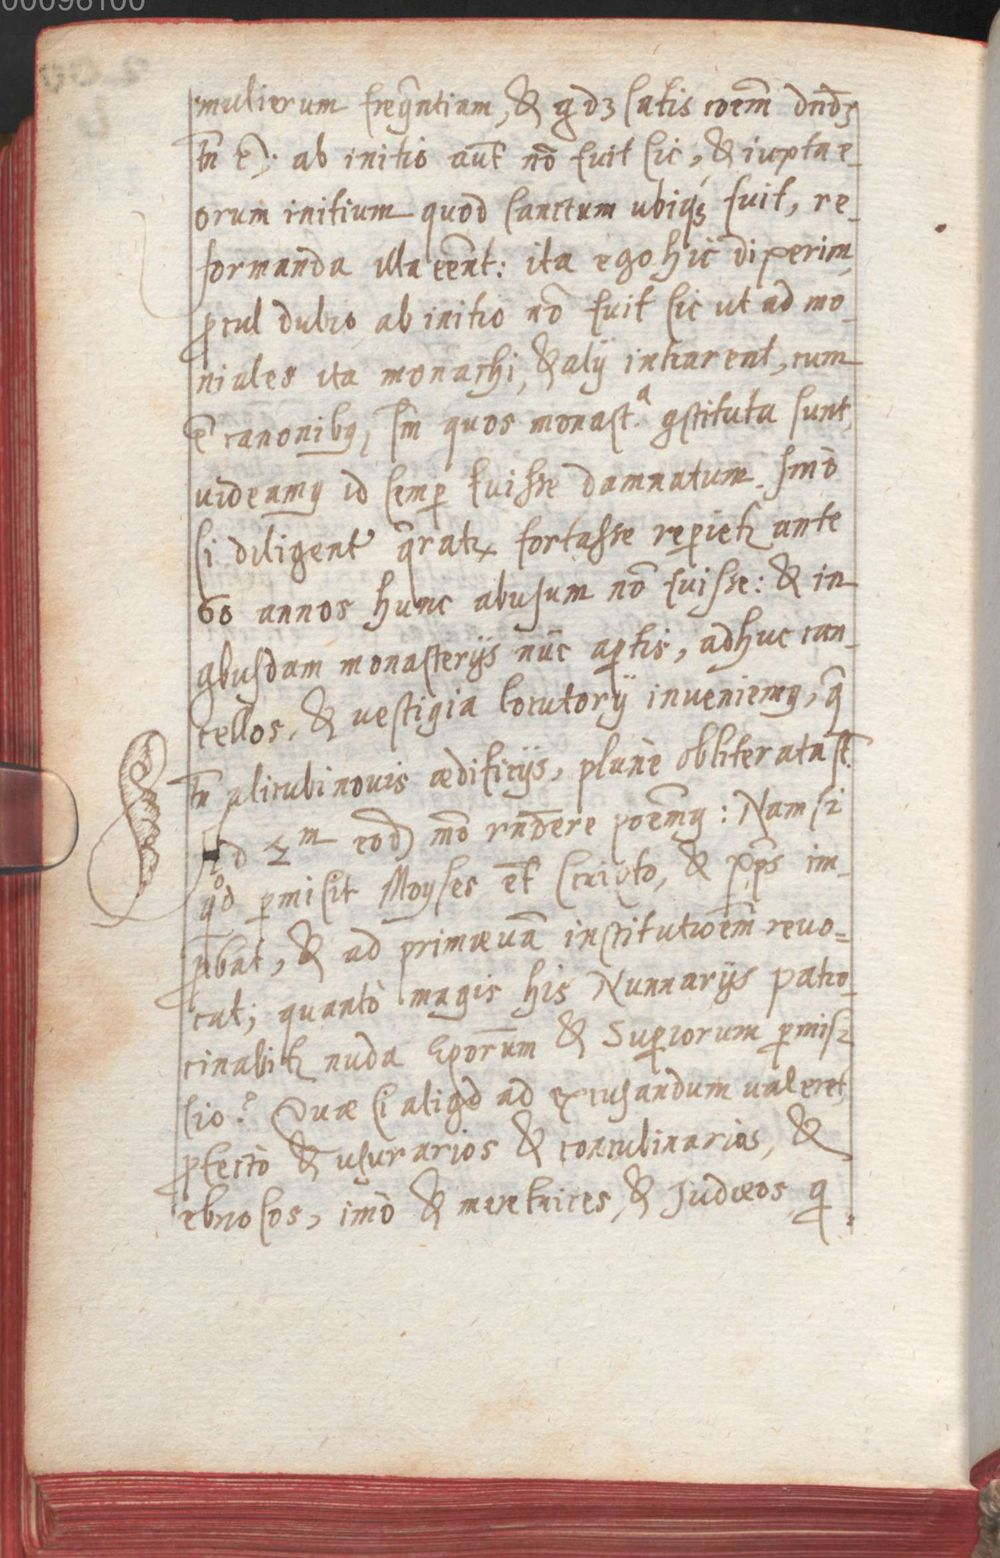 00096100
mulierum freq̃ntiam, & qdʒ satis coem̃ dnd̃ʒ
tñ ẽ): ab initio aut̃ nõ fuit sic, & iuxta e-
orum initium quod sanctum ubiqʒ fuit, re-
formanda illa eẽnt: ita ego hic dixerim,
ꝓcul dubio ab initio nõ fuit sic ut ad mo-
niales ita monachi, & alij intrarent, cum
ẽ canonibꝯ, sm̃ quos monast.ª ꝯstituta sunt,
uideamꝯ id semꝑ fuisse damnatum. Imò
si diligent' q̃ratr fortasse reꝑietr ante
60 annos hunc abusum nõ fuisse: & in
qbusdam monasterijs nũc aꝑtis, adhuc can-
cellos, & uestigia locutorij inueniemꝯ, q̃
tñ alicubi nouis ædificijs, planè obliterata st̃.
Ad 2.m eod) mõ rndẽre poẽmꝯ: Nam si
qºd ꝑmisit Moyses et̃ scripto, & xp̃s im-
ꝓbat, & ad primæuã institutioẽm reuo=
cat; quantò magis his Nunnarijs patro-
cinabitr nuda Eporũm & Suꝑiorum ꝑmis-
sio? Quæ si aliqd ad excusandum ualeret,
ꝓfectò & usurarios & concubinarios, &
ebriosos, imò & meretrices, & Judæos q